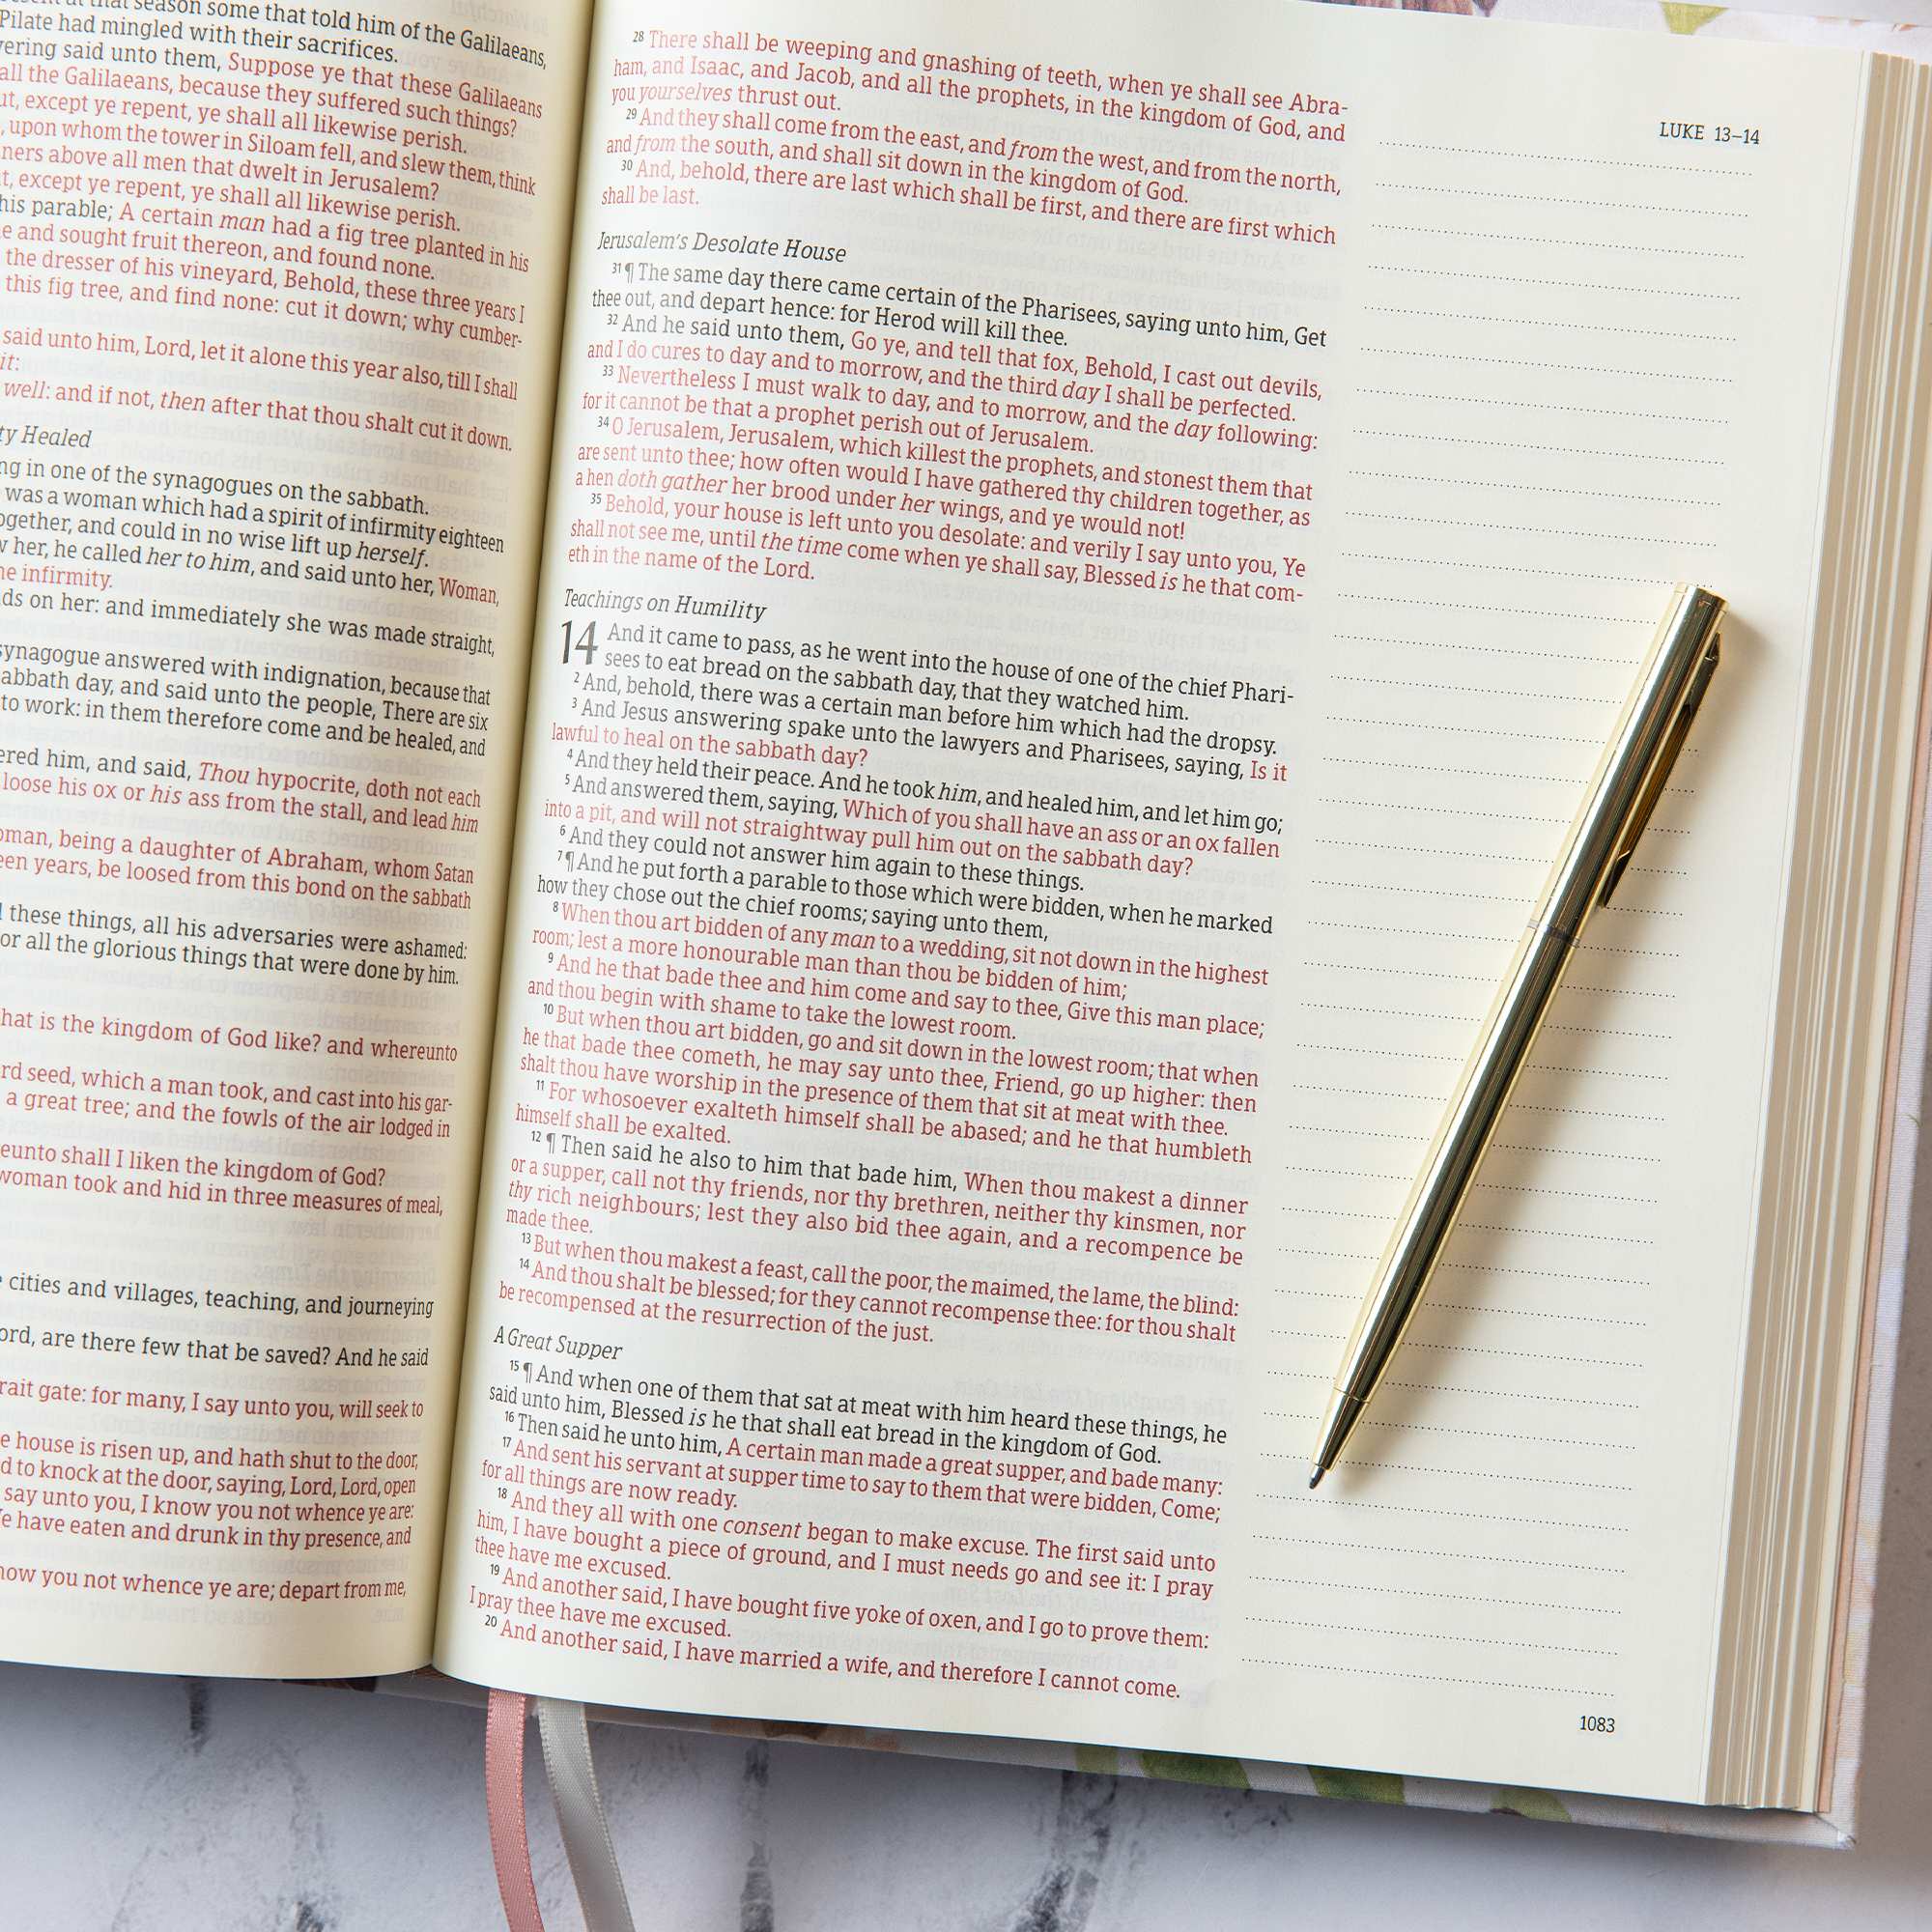 at that season some that told him of the Galilaeans,
Pilate had mingled with their sacrifices.
vering said unto them, Suppose ye that these Galilaeans
all the Galilaeans, because they suffered such things?
ut, except ye repent, ye shall all likewise perish.
, upon whom the tower in Siloam fell, and slew them, think
ners above all men that dwelt in Jerusalem?
t, except ye repent, ye shall all likewise perish.
his parable; A certain man had a fig tree planted in his
e and sought fruit thereon, and found none.
the dresser of his vineyard, Behold, these three years I
this fig tree, and find none: cut it down; why cumber-
said unto him, Lord, let it alone this year also, till I shall
it:
well: and if not, then after that thou shalt cut it down.
ty Healed
ng in one of the synagogues on the sabbath.
was a woman which had a spirit of infirmity eighteen
ogether, and could in no wise lift up herself.
w her, he called her to him, and said unto her, Woman,
ne infirmity.
ds on her: and immediately she was made straight,
synagogue answered with indignation, because that
abbath day, and said unto the people, There are six
to work: in them therefore come and be healed, and
ered him, and said, Thou hypocrite, doth not each
loose his ox or his ass from the stall, and lead him
oman, being a daughter of Abraham, whom Satan
een years, be loosed from this bond on the sabbath
l these things, all his adversaries were ashamed:
or all the glorious things that were done by him.
hat is the kingdom of God like? and whereunto
rd seed, which a man took, and cast into his gar-
a great tree; and the fowls of the air lodged in
eunto shall I liken the kingdom of God?
woman took and hid in three measures of meal,
e cities and villages, teaching, and journeying
ord, are there few that be saved? And he said
rait gate: for many, I say unto you, will seek to
e house is risen up, and hath shut to the door,
d to knock at the door, saying, Lord, Lord, open
say unto you, I know you not whence ye are:
e have eaten and drunk in thy presence, and
now you not whence ye are; depart from me,
LUKE 13–14
28 There shall be weeping and gnashing of teeth, when ye shall see Abra-
ham, and Isaac, and Jacob, and all the prophets, in the kingdom of God, and
you yourselves thrust out.
29 And they shall come from the east, and from the west, and from the north,
and from the south, and shall sit down in the kingdom of God.
30 And, behold, there are last which shall be first, and there are first which
shall be last.
Jerusalem's Desolate House
31 ¶ The same day there came certain of the Pharisees, saying unto him, Get
thee out, and depart hence: for Herod will kill thee.
32 And he said unto them, Go ye, and tell that fox, Behold, I cast out devils,
and I do cures to day and to morrow, and the third day I shall be perfected.
33 Nevertheless I must walk to day, and to morrow, and the day following:
for it cannot be that a prophet perish out of Jerusalem.
34 O Jerusalem, Jerusalem, which killest the prophets, and stonest them that
are sent unto thee; how often would I have gathered thy children together, as
a hen doth gather her brood under her wings, and ye would not!
35 Behold, your house is left unto you desolate: and verily I say unto you, Ye
shall not see me, until the time come when ye shall say, Blessed is he that com-
eth in the name of the Lord.
Teachings on Humility
14 And it came to pass, as he went into the house of one of the chief Phari-
sees to eat bread on the sabbath day, that they watched him.
2 And, behold, there was a certain man before him which had the dropsy.
3 And Jesus answering spake unto the lawyers and Pharisees, saying, Is it
lawful to heal on the sabbath day?
4 And they held their peace. And he took him, and healed him, and let him go;
5 And answered them, saying, Which of you shall have an ass or an ox fallen
into a pit, and will not straightway pull him out on the sabbath day?
6 And they could not answer him again to these things.
7 ¶ And he put forth a parable to those which were bidden, when he marked
how they chose out the chief rooms; saying unto them,
8 When thou art bidden of any man to a wedding, sit not down in the highest
room; lest a more honourable man than thou be bidden of him;
9 And he that bade thee and him come and say to thee, Give this man place;
and thou begin with shame to take the lowest room.
10 But when thou art bidden, go and sit down in the lowest room; that when
he that bade thee cometh, he may say unto thee, Friend, go up higher: then
shalt thou have worship in the presence of them that sit at meat with thee.
11 For whosoever exalteth himself shall be abased; and he that humbleth
himself shall be exalted.
12 ¶ Then said he also to him that bade him, When thou makest a dinner
or a supper, call not thy friends, nor thy brethren, neither thy kinsmen, nor
thy rich neighbours; lest they also bid thee again, and a recompence be
made thee.
13 But when thou makest a feast, call the poor, the maimed, the lame, the blind:
14 And thou shalt be blessed; for they cannot recompense thee: for thou shalt
be recompensed at the resurrection of the just.
A Great Supper
15 ¶ And when one of them that sat at meat with him heard these things, he
said unto him, Blessed is he that shall eat bread in the kingdom of God.
16 Then said he unto him, A certain man made a great supper, and bade many:
17 And sent his servant at supper time to say to them that were bidden, Come;
for all things are now ready.
18 And they all with one consent began to make excuse. The first said unto
him, I have bought a piece of ground, and I must needs go and see it: I pray
thee have me excused.
19 And another said, I have bought five yoke of oxen, and I go to prove them:
I pray thee have me excused.
20 And another said, I have married a wife, and therefore I cannot come.
1083